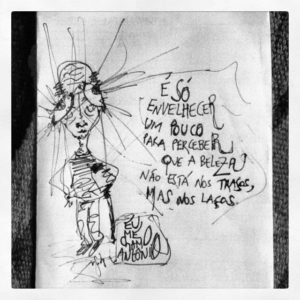 É SÓ
ENVELHECER
UM POUCO
PARA PERCEBER
QUE A BELEZA
NÃO ESTÁ NOS TRAÇOS,
MAS NOS LAÇOS.
EU
ME
CHAMO
ANTÔNIO